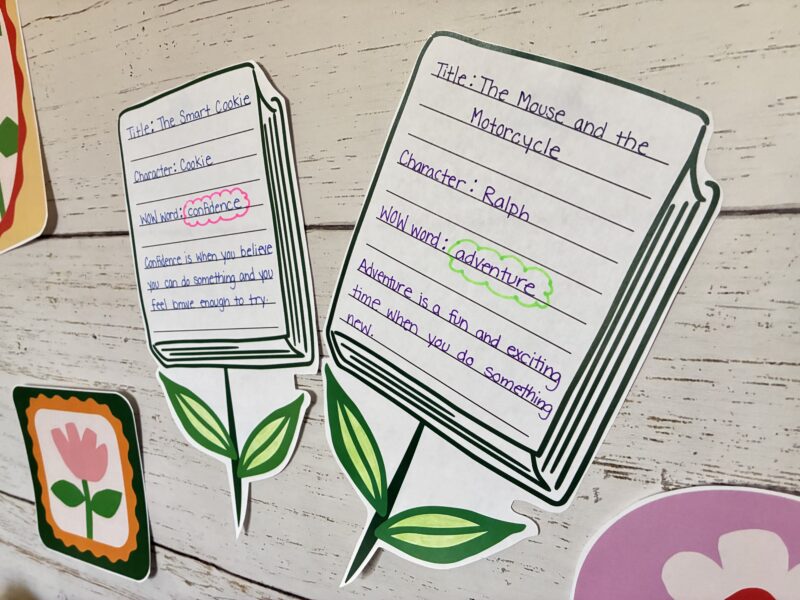 Title: The Smart Cookie
Character: Cookie
WOW word: confidence
Confidence is when you believe
you can do something and you
feel brave enough to try.
Title: The Mouse and the
Motorcycle
Character: Ralph
WOW word: adventure
Adventure is a fun and exciting
time when you do something
new.